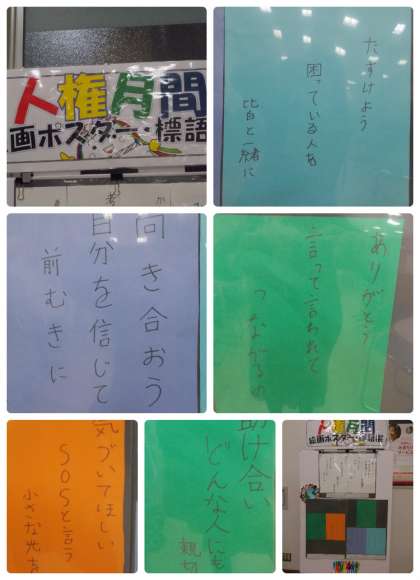 人権月間
絵画ポスター・標語
たすけよう
困っている人を
皆と一緒に
向き合おう
自分を信じて
前むきに
ありがとう
言って言われて
つながるの
気づいてほしい
SOSと言う
小さな光を
助け合い
どんな人にも
親切
人権月間
絵画ポスター・標語展